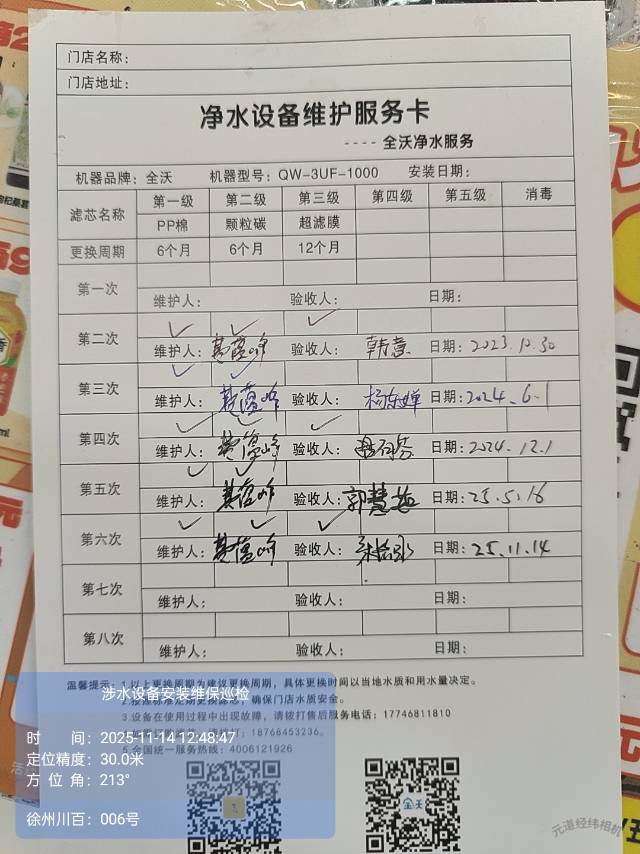 门店名称：
门店地址：
净水设备维护服务卡
---- 全沃净水服务
机器品牌：全沃 机器型号：QW-3UF-1000 安装日期：
滤芯名称 第一级 第二级 第三级 第四级 第五级 消毒
PP棉 颗粒碳 超滤膜
更换周期 6个月 6个月 12个月
第一次
维护人： 验收人： 日期：
第二次 ✓ ✓ ✓
维护人： 验收人：韩慧 日期：2023.10.30
第三次 ✓ ✓
维护人： 验收人： 日期：2024.6.1
第四次 ✓ ✓ ✓
维护人： 验收人： 日期：2024.12.1
第五次 ✓ ✓
维护人： 验收人：郭慧 日期：25.5.16
第六次 ✓ ✓ ✓
维护人： 验收人： 日期：25.11.14
第七次
维护人： 验收人： 日期：
第八次
维护人： 验收人： 日期：
温馨提示：1.以上更换周期为建议更换周期，具体更换时间以当地水质和用水量决定。
2.按照标准定期更换滤芯，确保门店水质安全。
3.设备在使用过程中出现故障，请拨打售后服务电话：17746811810
18768453236。
5.全国统一服务热线：4006121926
涉水设备安装维保巡检
时 间：2025-11-14 12:48:47
定位精度：30.0米
方 位 角：213°
徐州川百：006号
全沃
元道经纬相机